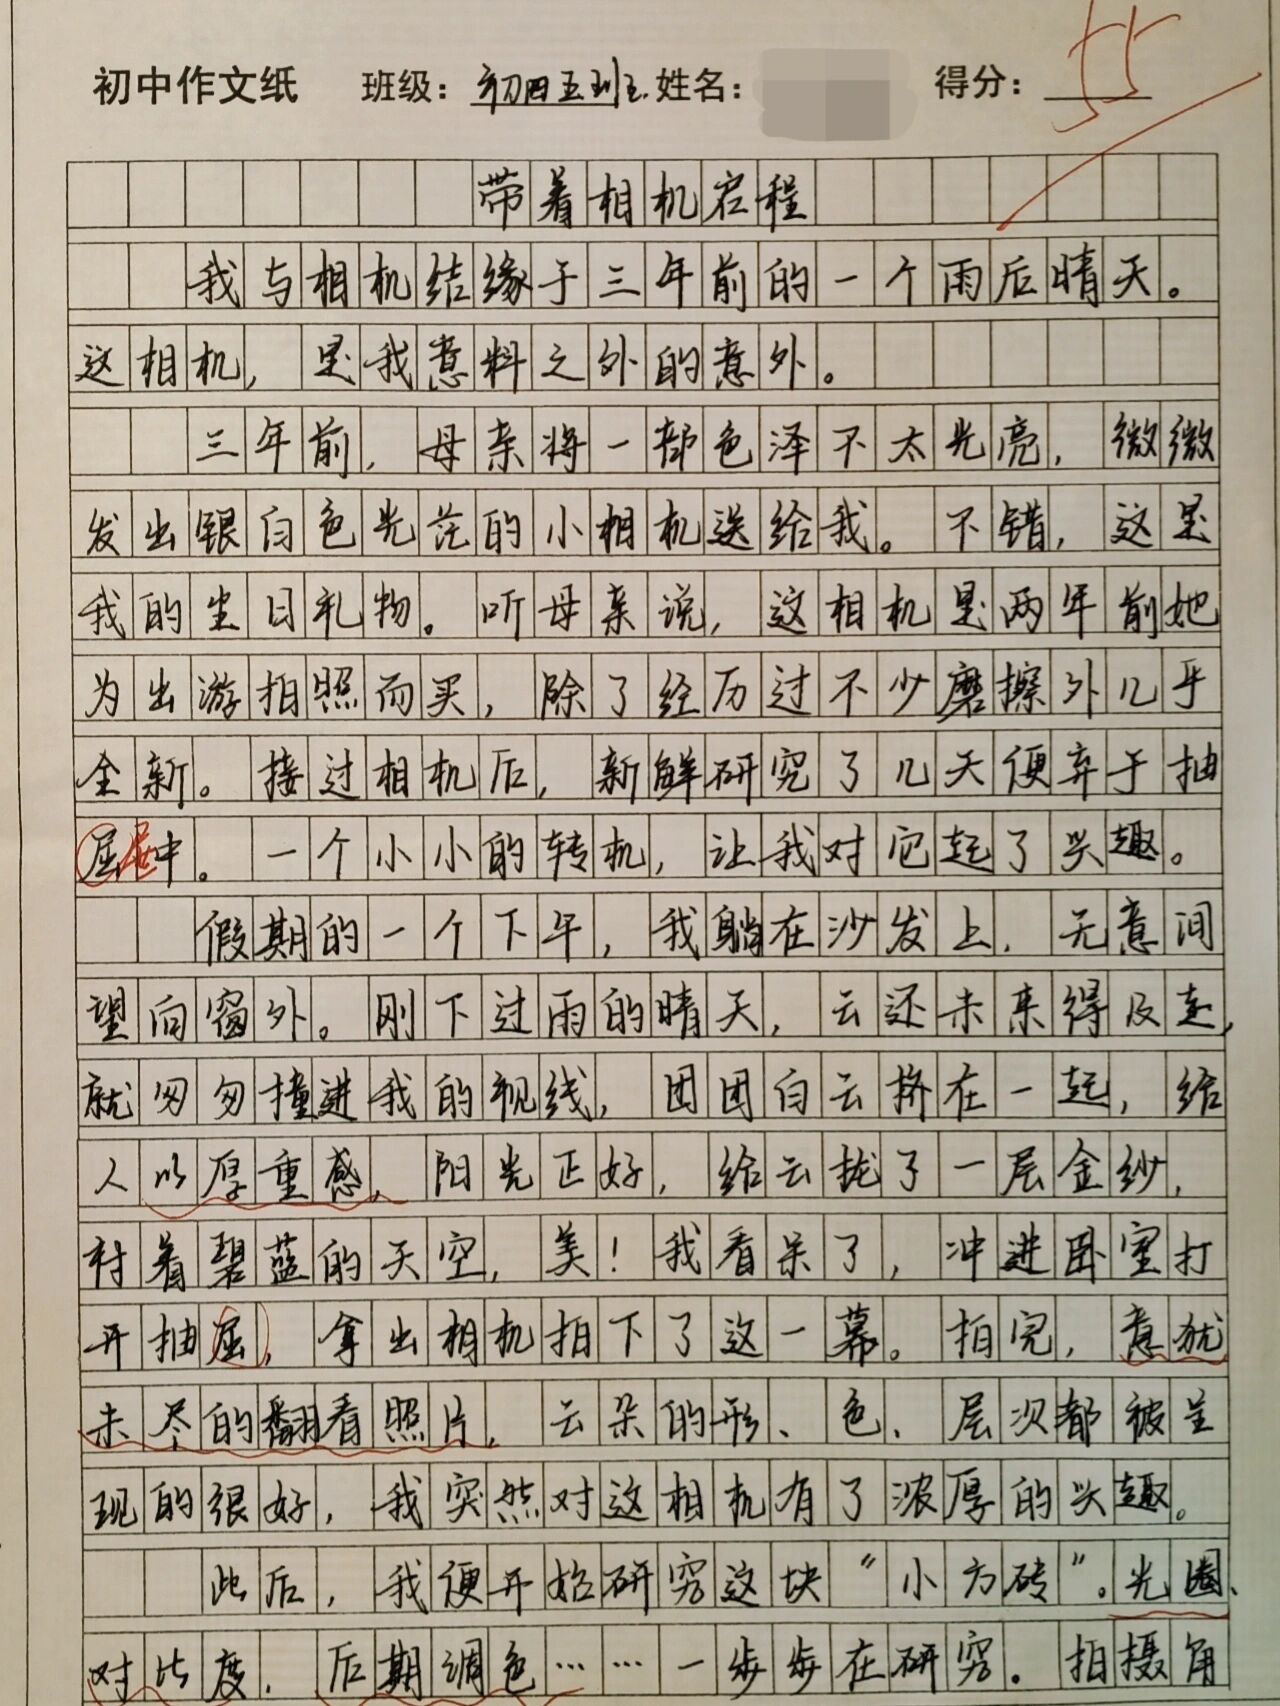 初中作文纸 班级：初四五班 姓名： 得分：55
带着相机启程
我与相机结缘于三年前的一个雨后晴天。
这相机，是我意料之外的意外。
三年前，母亲将一部色泽不太光亮，微微
发出银白色光茫的小相机送给我。不错，这是
我的生日礼物。听母亲说，这相机是两年前她
为出游拍照而买，除了经历过不少磨擦外几乎
全新。接过相机后，新鲜研究了几天便弃于抽
屉中。一个小小的转机，让我对它起了兴趣。
假期的一个下午，我躺在沙发上，无意间
望向窗外。刚下过雨的晴天，云还未来得及走，
就匆匆撞进我的视线，团团白云挤在一起，给
人以厚重感，阳光正好，给云拢了一层金纱，
衬着碧蓝的天空，美！我看呆了，冲进卧室打
开抽屉，拿出相机拍下了这一幕。拍完，意犹
未尽的翻看照片，云朵的形、色、层次都被呈
现的很好，我突然对这相机有了浓厚的兴趣。
此后，我便开始研究这块“小方砖”。光圈、
对比度、后期调色……一步步在研究。拍摄角